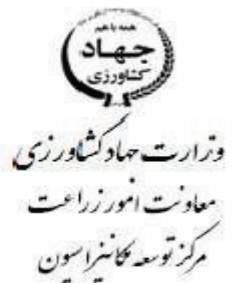 همه با هم
جهاد
کشاورزی
وزارت جهاد کشاورزی
معاونت امور زراعت
مرکز توسعه مکانیزاسیون